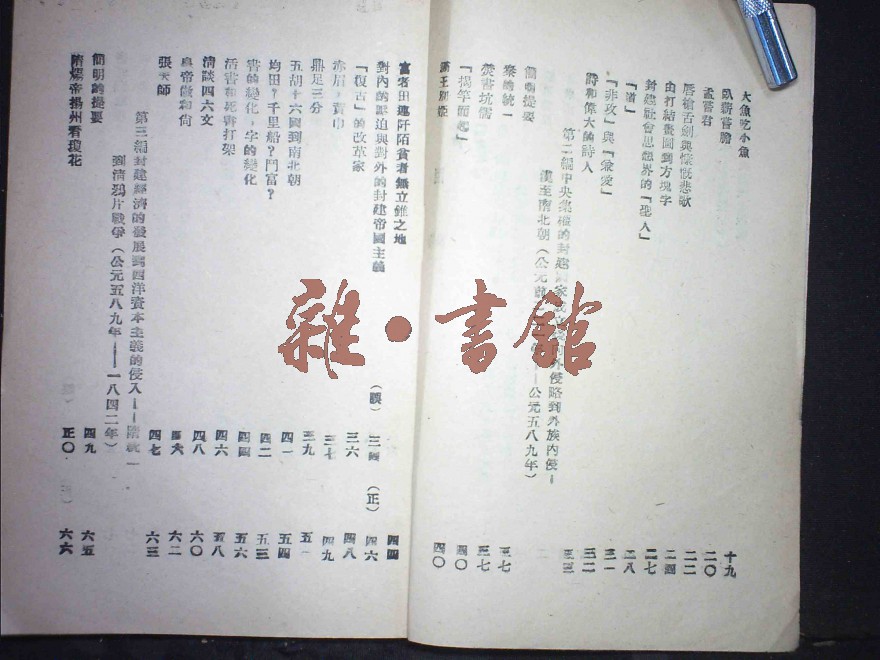 大魚吃小魚 十九
臥薪嘗膽 二〇
孟嘗君
唇槍舌劍與慷慨悲歌 二二
由打結畫圖到方塊字 二四
封建社會思想界的「聖人」 二七
「諸」 二八
「非攻」與「兼愛」 三一
詩和偉大的詩人 三二
第二編中央集權的封建國家成立
外侵略到外族內侵——
漢至南北朝(公元前
——公元五八九年)
簡明提要
秦的統一 三七
焚書坑儒 三七
「揭竿而起」 四〇
霸王別姬 四〇
富者田連阡陌貧者無立錐之地 四四
對內的壓迫與對外的封建帝國主義 (誤)三四(正)四六
「復古」的改革家 三六 四八
赤眉,黃巾 三七 四九
鼎足三分 三九 五一
五胡十六國到南北朝 四一 五四
均田?千里船?鬥富? 四二 五三
書的變化,字的變化 四四 五六
活書和死書打架 四六 五八
清談四六文 四八 六〇
皇帝做和尚 六二
張天師 四七 六三
第三編封建經濟的發展到西洋資本主義的侵入——隋統一
到清鴉片戰爭(公元五八九年——一八四二年)
簡明的提要 四九 六五
隋煬帝揚州看瓊花 正〇 六六
雜·書館